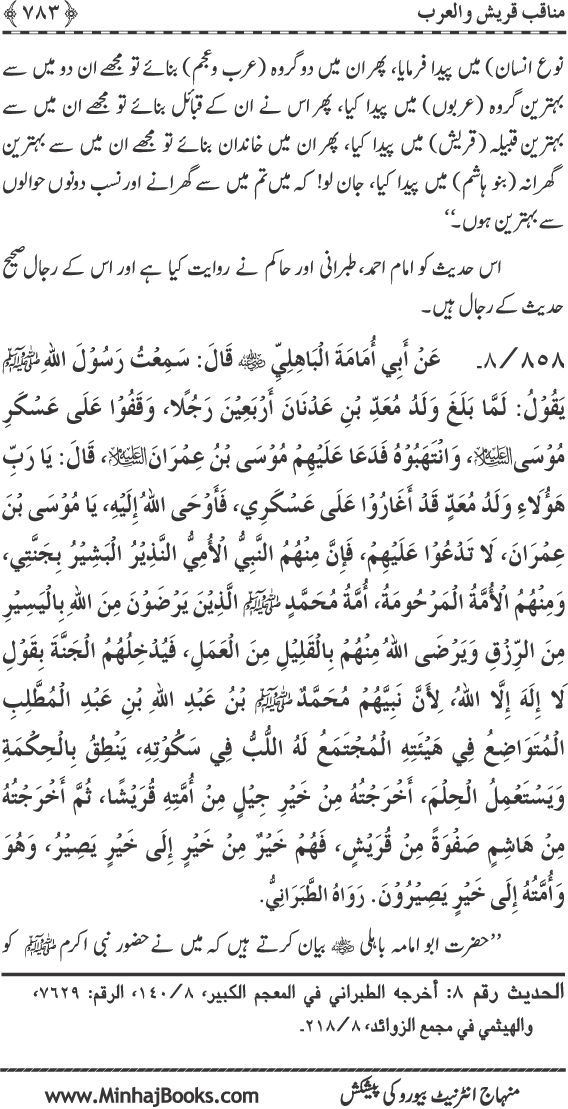 مناقب قریش والعرب ﴿ ٧٨٣ ﴾
نوع انسان) میں پیدا فرمایا، پھر ان میں دو گروہ (عرب و عجم) بنائے تو مجھے ان دو میں سے
بہترین گروہ (عربوں) میں پیدا کیا، پھر اس نے ان کے قبائل بنائے تو مجھے ان میں سے
بہترین قبیلہ (قریش) میں پیدا کیا، پھر ان میں خاندان بنائے تو مجھے ان میں سے بہترین
گھرانہ (بنو ہاشم) میں پیدا کیا، جان لو! کہ میں تم میں سے گھرانے اور نسب دونوں حوالوں
سے بہترین ہوں۔‘‘
اس حدیث کو امام احمد، طبرانی اور حاکم نے روایت کیا ہے اور اس کے رجال صحیح
حدیث کے رجال ہیں۔
٨/٨٥٨۔ عَنْ أَبِي أُمَامَةَ الْبَاهِلِيِّ رضی اللہ عنہ قَالَ: سَمِعْتُ رَسُوْلَ اللهِ ﷺ
يَقُوْلُ: لَمَّا بَلَغَ وَلَدُ مُعَدِّ بْنِ عَدْنَانَ أَرْبَعِيْنَ رَجُلًا، وَقَفُوْا عَلَى عَسْكَرِ
مُوْسَى علیہ السلام، وَانْتَهَبُوْهُ فَدَعَا عَلَيْهِمْ مُوْسَى بْنُ عِمْرَانَ علیہ السلام، قَالَ: يَا رَبِّ
هَؤُلَاءِ وَلَدُ مُعَدٍّ قَدْ أَغَارُوْا عَلَى عَسْكَرِي، فَأَوْحَى اللهُ إِلَيْهِ، يَا مُوْسَى بْنَ
عِمْرَانَ، لَا تَدْعُوْا عَلَيْهِمْ، فَإِنَّ مِنْهُمُ النَّبِيُّ الْأُمِيُّ النَّذِيْرُ الْبَشِيْرُ بِجَنَّتِي،
وَمِنْهُمُ الْأُمَّةُ الْمَرْحُوْمَةُ، أُمَّةُ مُحَمَّدٍ ﷺ الَّذِيْنَ يَرْضَوْنَ مِنَ اللهِ بِالْيَسِيْرِ
مِنَ الرِّزْقِ وَيَرْضَى اللهُ مِنْهُمْ بِالْقَلِيْلِ مِنَ الْعَمَلِ، فَيُدْخِلُهُمُ الْجَنَّةَ بِقَوْلِ
لَا إِلَهَ إِلَّا اللهُ، لِأَنَّ نَبِيَّهُمْ مُحَمَّدٌ ﷺ بْنُ عَبْدِ اللهِ بْنِ عَبْدِ الْمُطَّلِبِ
الْمُتَوَاضِعُ فِي هَيْئَتِهِ الْمُجْتَمَعُ لَهُ اللُّبُّ فِي سَكُوْتِهِ، يَنْطِقُ بِالْحِكْمَةِ
وَيَسْتَعْمِلُ الْحِلْمَ، أَخْرَجْتُهُ مِنْ خَيْرِ جِيْلٍ مِنْ أُمَّتِهِ قُرَيْشًا، ثُمَّ أَخْرَجْتُهُ
مِنْ هَاشِمٍ صَفْوَةً مِنْ قُرَيْشٍ، فَهُمْ خَيْرٌ مِنْ خَيْرٍ إِلَى خَيْرٍ يَصِيْرُ، وَهُوَ
وَأُمَّتُهُ إِلَى خَيْرٍ يَصِيْرُوْنَ. رَوَاهُ الطَّبَرَانِيُّ.
’’حضرت ابو امامہ باہلی رضی اللہ عنہ بیان کرتے ہیں کہ میں نے حضور نبی اکرم ﷺ کو
الحديث رقم ٨: أخرجه الطبراني في المعجم الكبير، ٨/١٤٠، الرقم: ٧٦٢٩،
والهيثمي في مجمع الزوائد، ٨/٢١٨۔
منہاج انٹرنیٹ بیورو کی پیشکش www.MinhajBooks.com